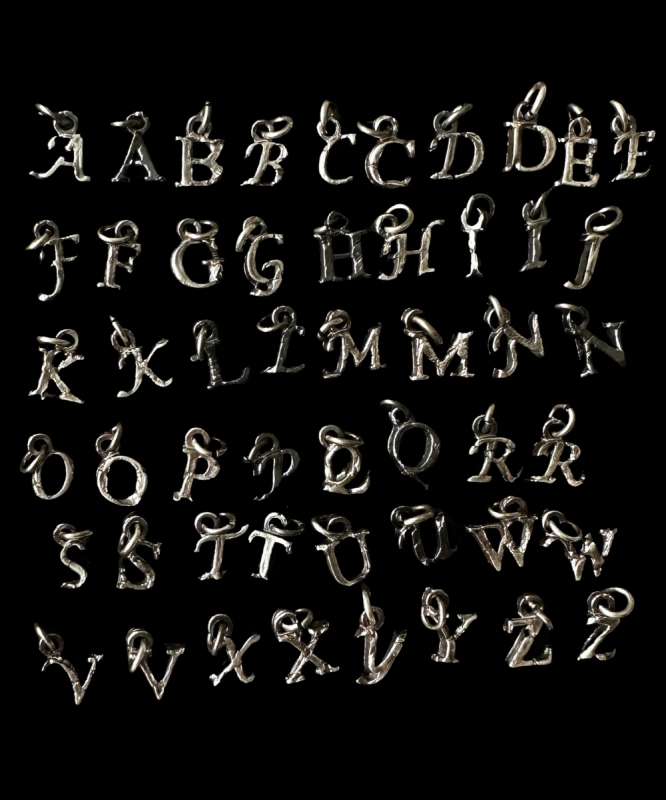 A A B B C C D D E E
F F G G H H I I J
K K L L M M N N
O O P P Q Q R R
S S T T U U W W
V V X X Y Y Z Z